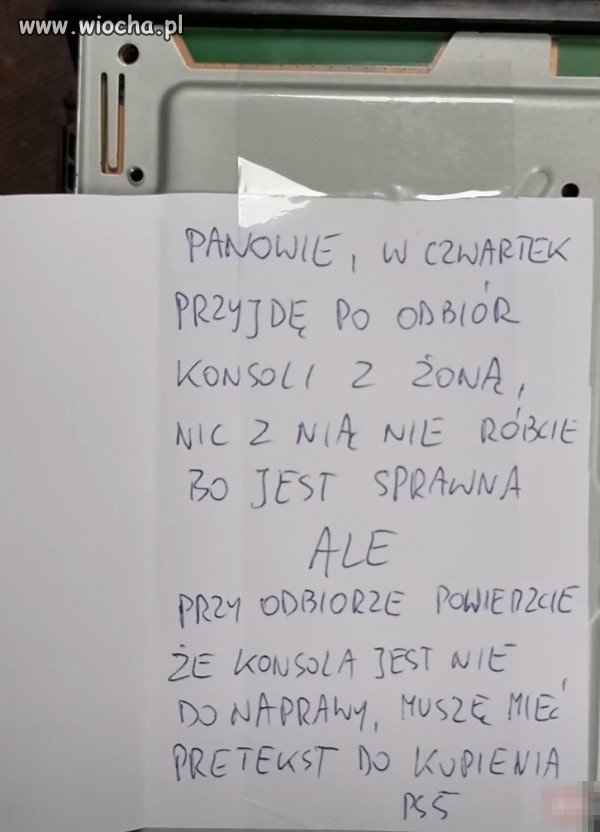 www.wiocha.pl
PANOWIE, W CZWARTEK
PRZYJDĘ PO ODBIÓR
KONSOLI Z ŻONĄ,
NIC Z NIĄ NIE RÓBCIE
BO JEST SPRAWNA
ALE
PRZY ODBIORZE POWIEDZCIE
ŻE KONSOLA JEST NIE
DO NAPRAWY, MUSZĘ MIEĆ
PRETEKST DO KUPIENIA
PS5